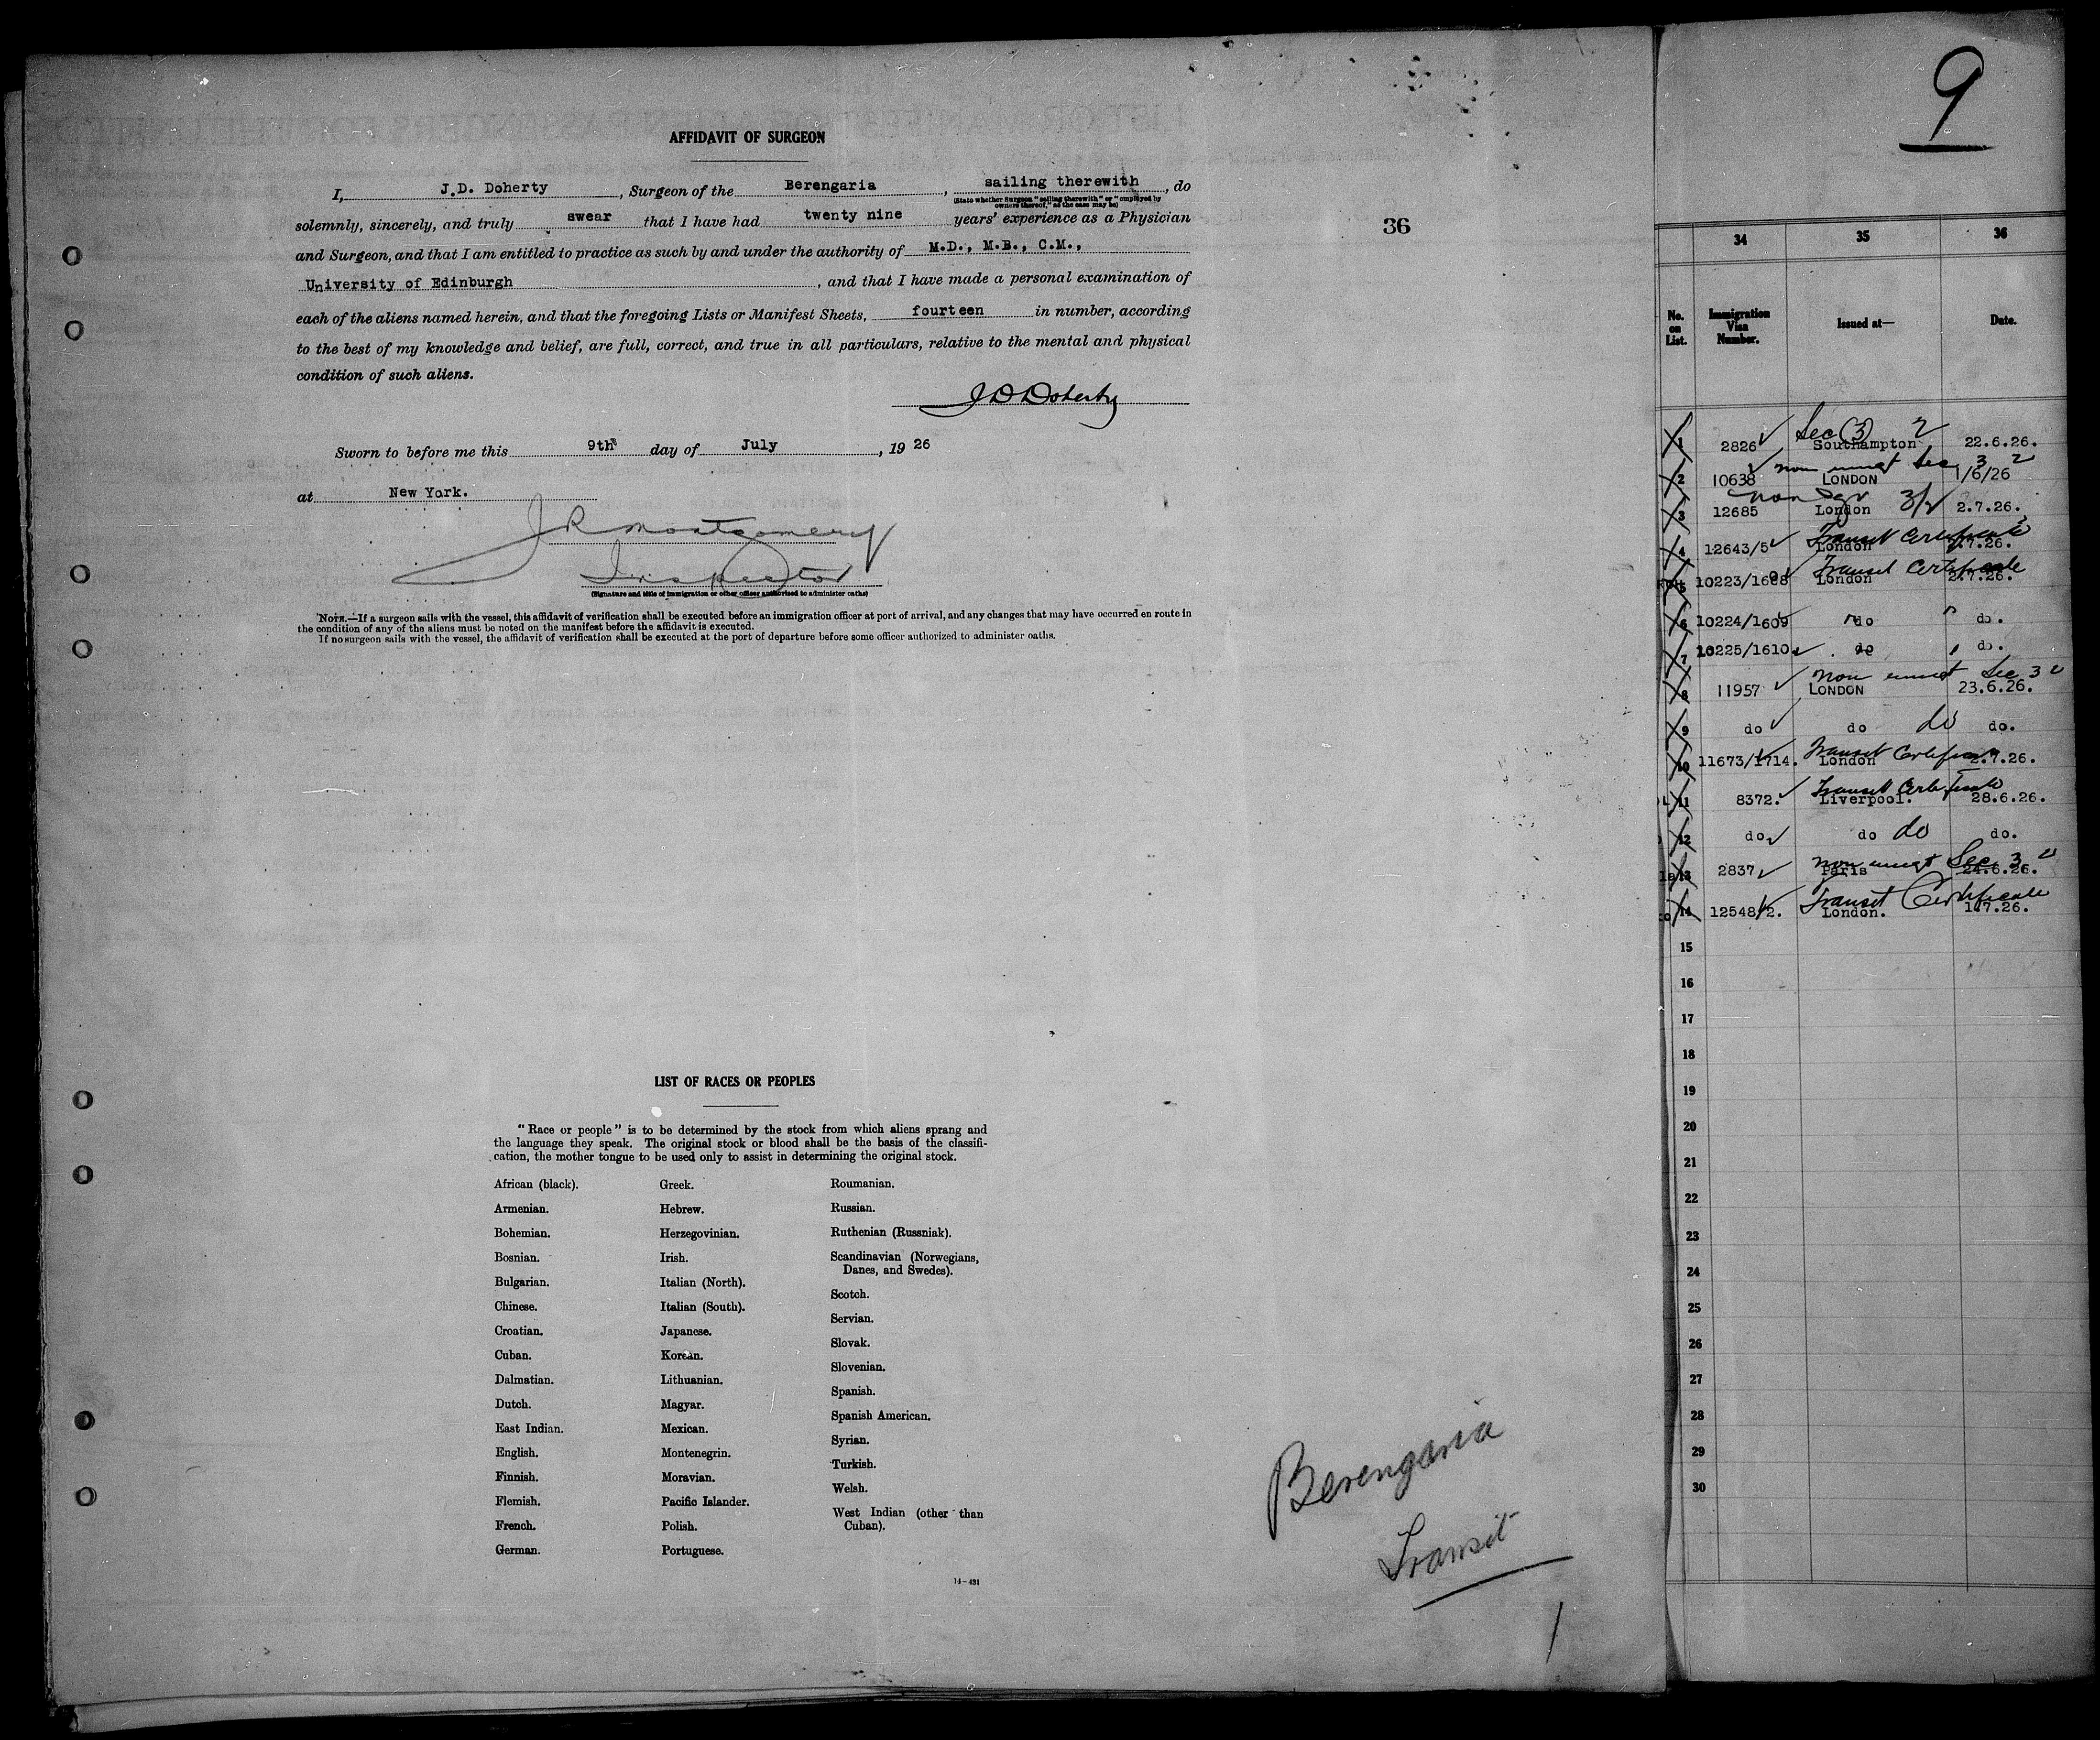 AFFIDAVIT OF SURGEON
I, J.D. Doherty, Surgeon of the Berengaria, sailing therewith, do
(State whether Surgeon "sailing therewith" or "employed by
owners thereof," as the case may be)
solemnly, sincerely, and truly swear that I have had twenty nine years' experience as a Physician
and Surgeon, and that I am entitled to practice as such by and under the authority of M.D., M.B., C.M.,
University of Edinburgh, and that I have made a personal examination of
each of the aliens named herein, and that the foregoing Lists or Manifest Sheets, fourteen in number, according
to the best of my knowledge and belief, are full, correct, and true in all particulars, relative to the mental and physical
condition of such aliens.
J D Doherty
Sworn to before me this 9th day of July, 19 26
at New York.
J R Montgomery
Inspector
(Signature and title of immigration or other officer authorised to administer oaths)
NOTE.—If a surgeon sails with the vessel, this affidavit of verification shall be executed before an immigration officer at port of arrival, and any changes that may have occurred en route in
the condition of any of the aliens must be noted on the manifest before the affidavit is executed.
If no surgeon sails with the vessel, the affidavit of verification shall be executed at the port of departure before some officer authorized to administer oaths.
36
LIST OF RACES OR PEOPLES
"Race or people" is to be determined by the stock from which aliens sprang and
the language they speak. The original stock or blood shall be the basis of the classifi-
cation, the mother tongue to be used only to assist in determining the original stock.
African (black).
Armenian.
Bohemian.
Bosnian.
Bulgarian.
Chinese.
Croatian.
Cuban.
Dalmatian.
Dutch.
East Indian.
English.
Finnish.
Flemish.
French.
German.
Greek.
Hebrew.
Herzegovinian.
Irish.
Italian (North).
Italian (South).
Japanese.
Korean.
Lithuanian.
Magyar.
Mexican.
Montenegrin.
Moravian.
Pacific Islander.
Polish.
Portuguese.
Roumanian.
Russian.
Ruthenian (Russniak).
Scandinavian (Norwegians,
Danes, and Swedes).
Scotch.
Servian.
Slovak.
Slovenian.
Spanish.
Spanish American.
Syrian.
Turkish.
Welsh.
West Indian (other than
Cuban).
14-431
Berengaria
Transit
1
9
34 35 36
No. on List. Immigration Visa Number. Issued at— Date.
Sec (3) 2
1 2826 Southampton 22.6.26.
non immgt Sec 3 2
2 10638 LONDON 1/6/26
non 3/2
3 12685 London 2.7.26.
Transit Certificate
4 12643/5 London .7.26.
Transit Certificate
5 10223/1608 London 2.7.26.
6 10224/1609 do do.
7 10225/1610 do do.
non immgt Sec 3 2
8 11957 LONDON 23.6.26.
9 do do do do.
Transit Certificate
10 11673/1714. London 2.7.26.
Transit Certificate
11 8372. Liverpool. 28.6.26.
12 do do do do.
non immgt Sec 3 2
13 2837 Paris 24.6.26.
Transit Certificate
14 12548/2. London. 1.7.26.
15
16
17
18
19
20
21
22
23
24
25
26
27
28
29
30